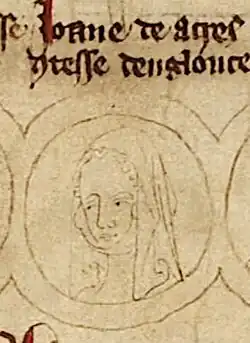 se Joane de acres
ntesse denglouce